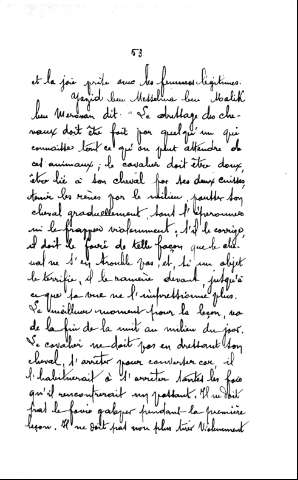 53
et la joie prête avec les femmes légitimes.
Yezid ben Messelma ben Malik
ben Merouan dit: "Le dressage des che-
vaux doit être fait par quelqu'un qui
connaisse tout ce qu'on peut attendre de
cet animaux; le cavalier doit être doux
être lié à son cheval par ses deux cuisses,
tenir les rênes par le milieu, pousser son
cheval graduellement, sans l'éperonner
ni le frapper violemment; s'il le corrige,
il doit le faire de telle façon que le che-
val ne s'en trouble pas, et, si un objet
le terrifie, il le ramène devant jusqu'à
ce que sa vue ne l'impressionne plus.
Le meilleur moment pour la leçon, va
de la fin de la nuit au milieu du jour.
Le cavalier ne doit pas en dressant son
cheval, s'arrêter pour converser car il
l'habituerait à s'arrêter toutes les fois
qu'il rencontrerait un passant. Il ne doit
pas le faire galoper pendant la première
leçon. Il ne doit pas non plus tirer violemment